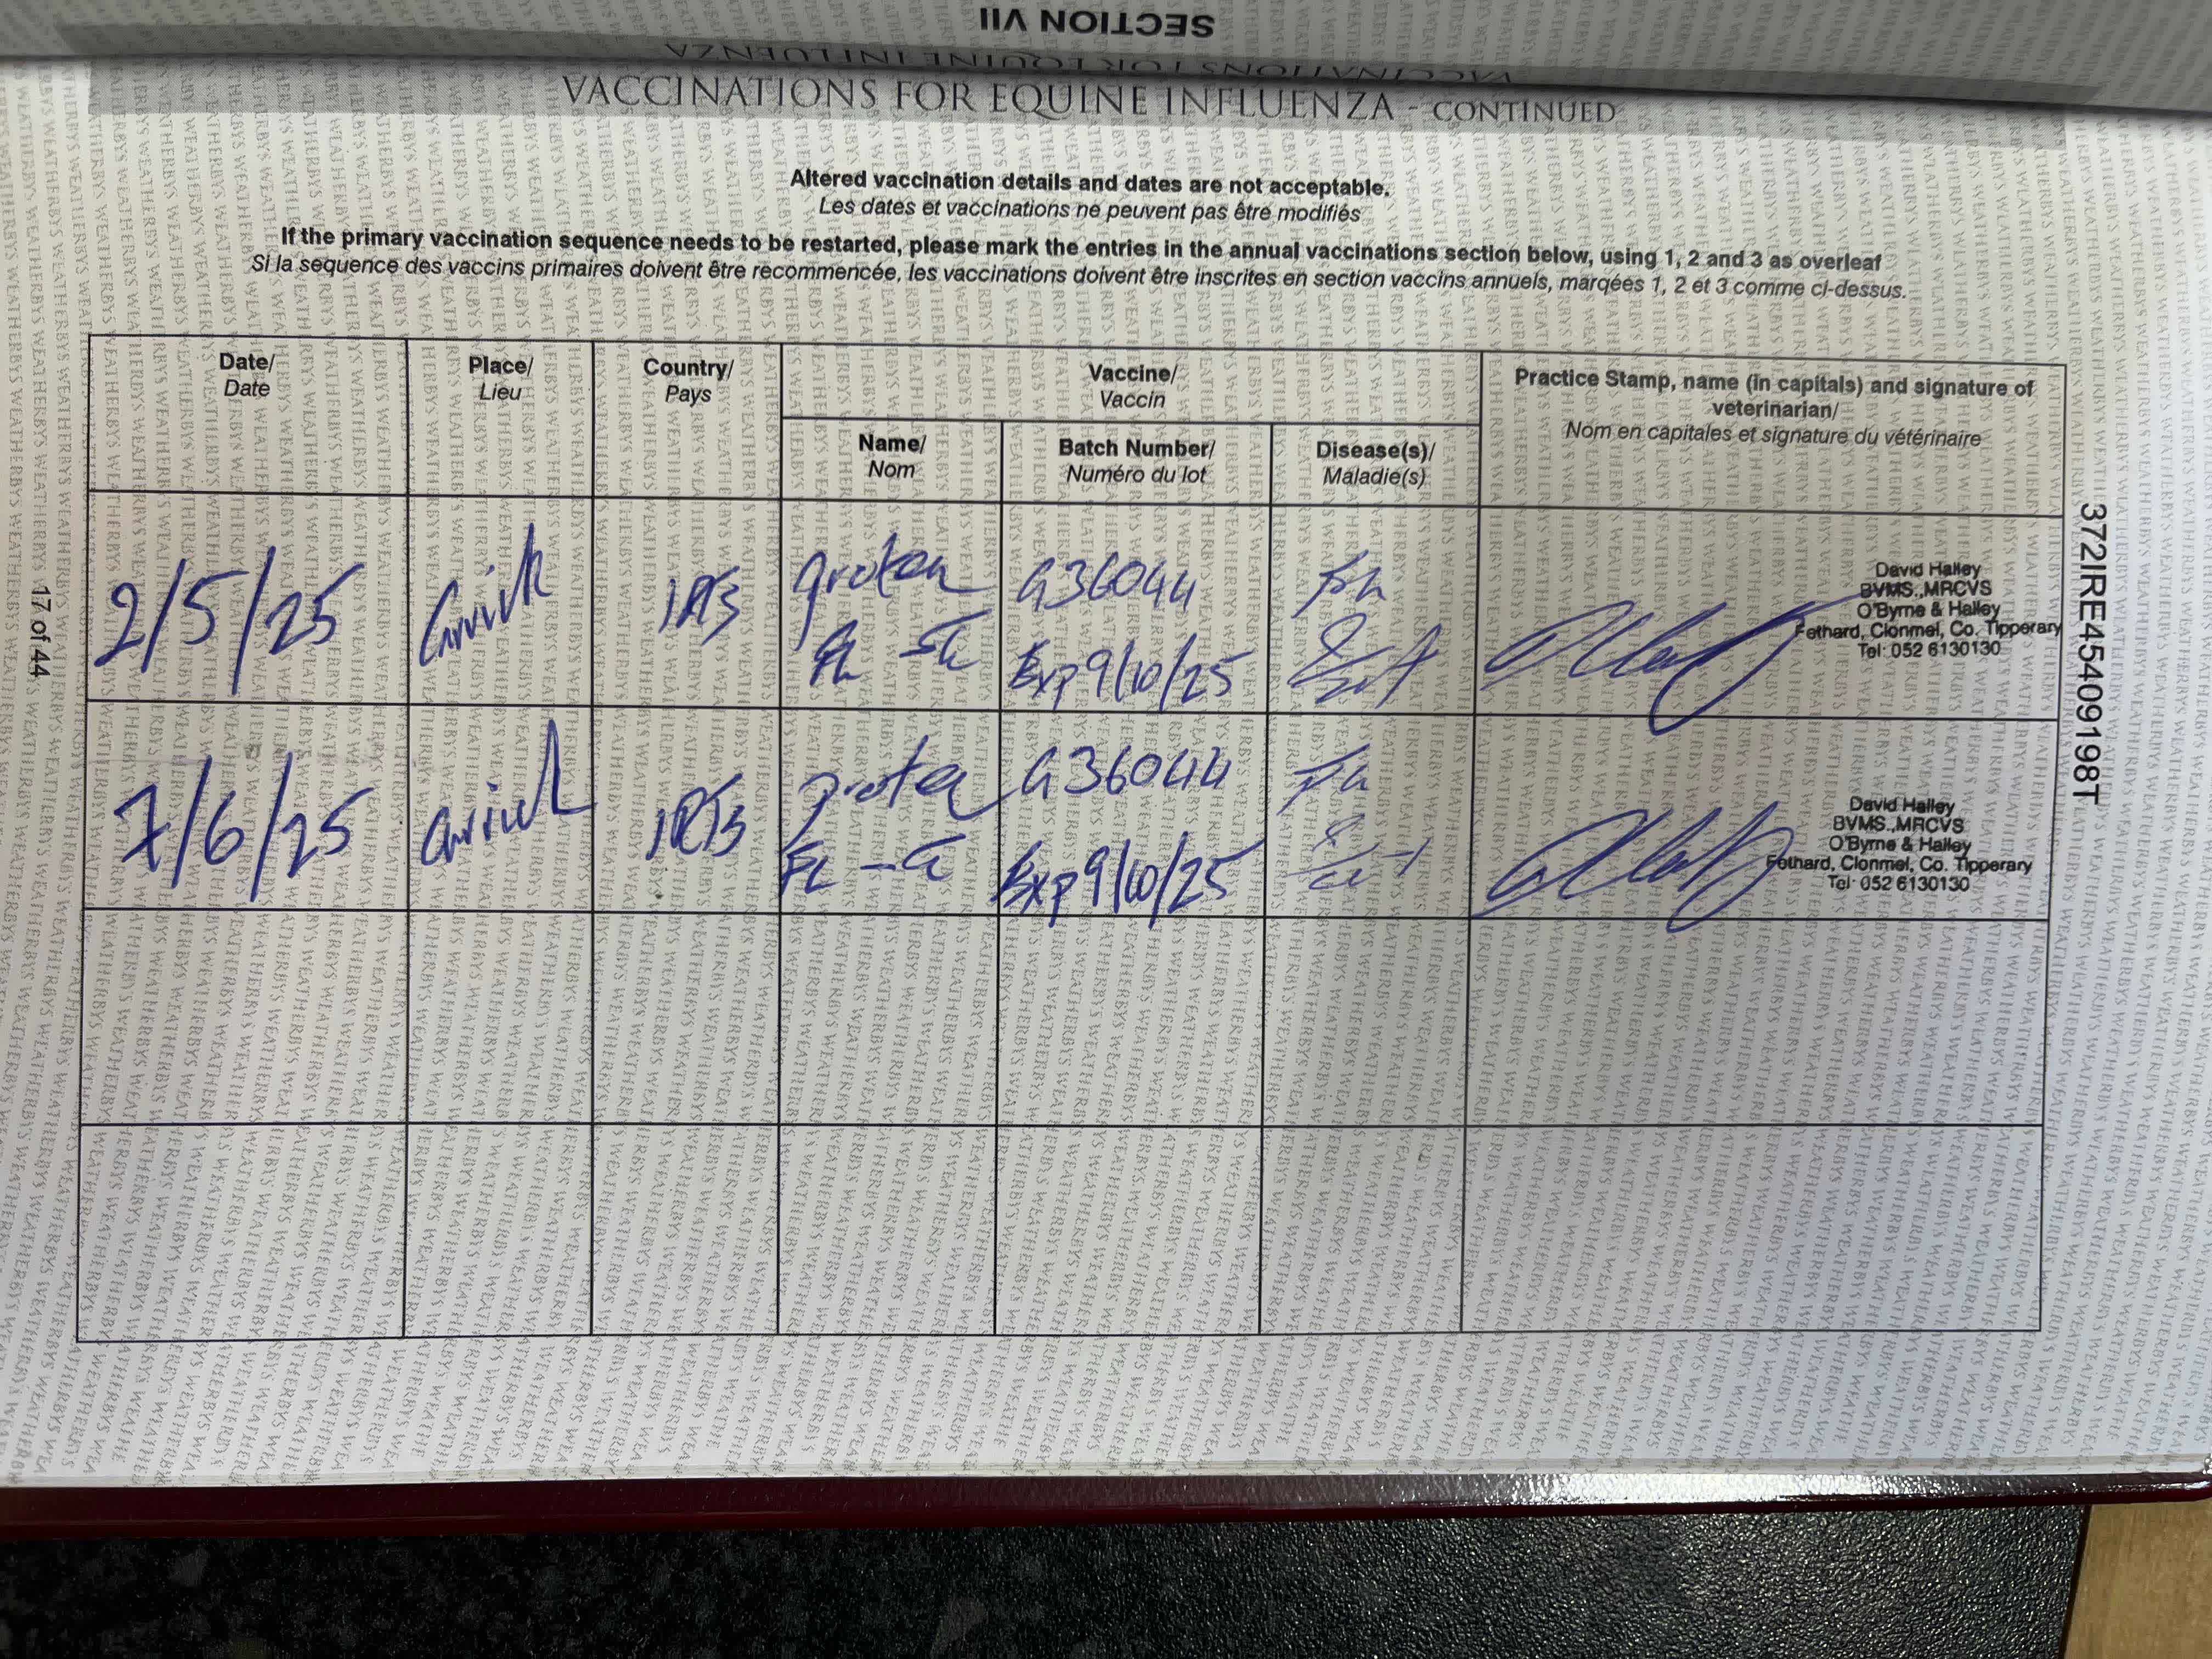 SECTION VII
VACCINATIONS FOR EQUINE INFLUENZA
VACCINATIONS FOR EQUINE INFLUENZA - CONTINUED
Altered vaccination details and dates are not acceptable.
Les dates et vaccinations ne peuvent pas être modifiés
If the primary vaccination sequence needs to be restarted, please mark the entries in the annual vaccinations section below, using 1, 2 and 3 as overleaf
Si la sequence des vaccins primaires doivent être recommencée, les vaccinations doivent être inscrites en section vaccins annuels, marqées 1, 2 et 3 comme ci-dessus.
Date/
Date
Place/
Lieu
Country/
Pays
Vaccine/
Vaccin
Name/
Nom
Batch Number/
Numéro du lot
Disease(s)/
Maladie(s)
Practice Stamp, name (in capitals) and signature of
veterinarian/
Nom en capitales et signature du vétérinaire
2/5/25
G36044
Exp 9/10/25
David Halley
BVMS.,MRCVS
O'Byrne & Halley
Fethard, Clonmel, Co. Tipperary
Tel: 052 6130130
7/6/25
G36044
Exp 9/10/25
David Halley
BVMS.,MRCVS
O'Byrne & Halley
Fethard, Clonmel, Co. Tipperary
Tel: 052 6130130
17 of 44
372IRE45409198T